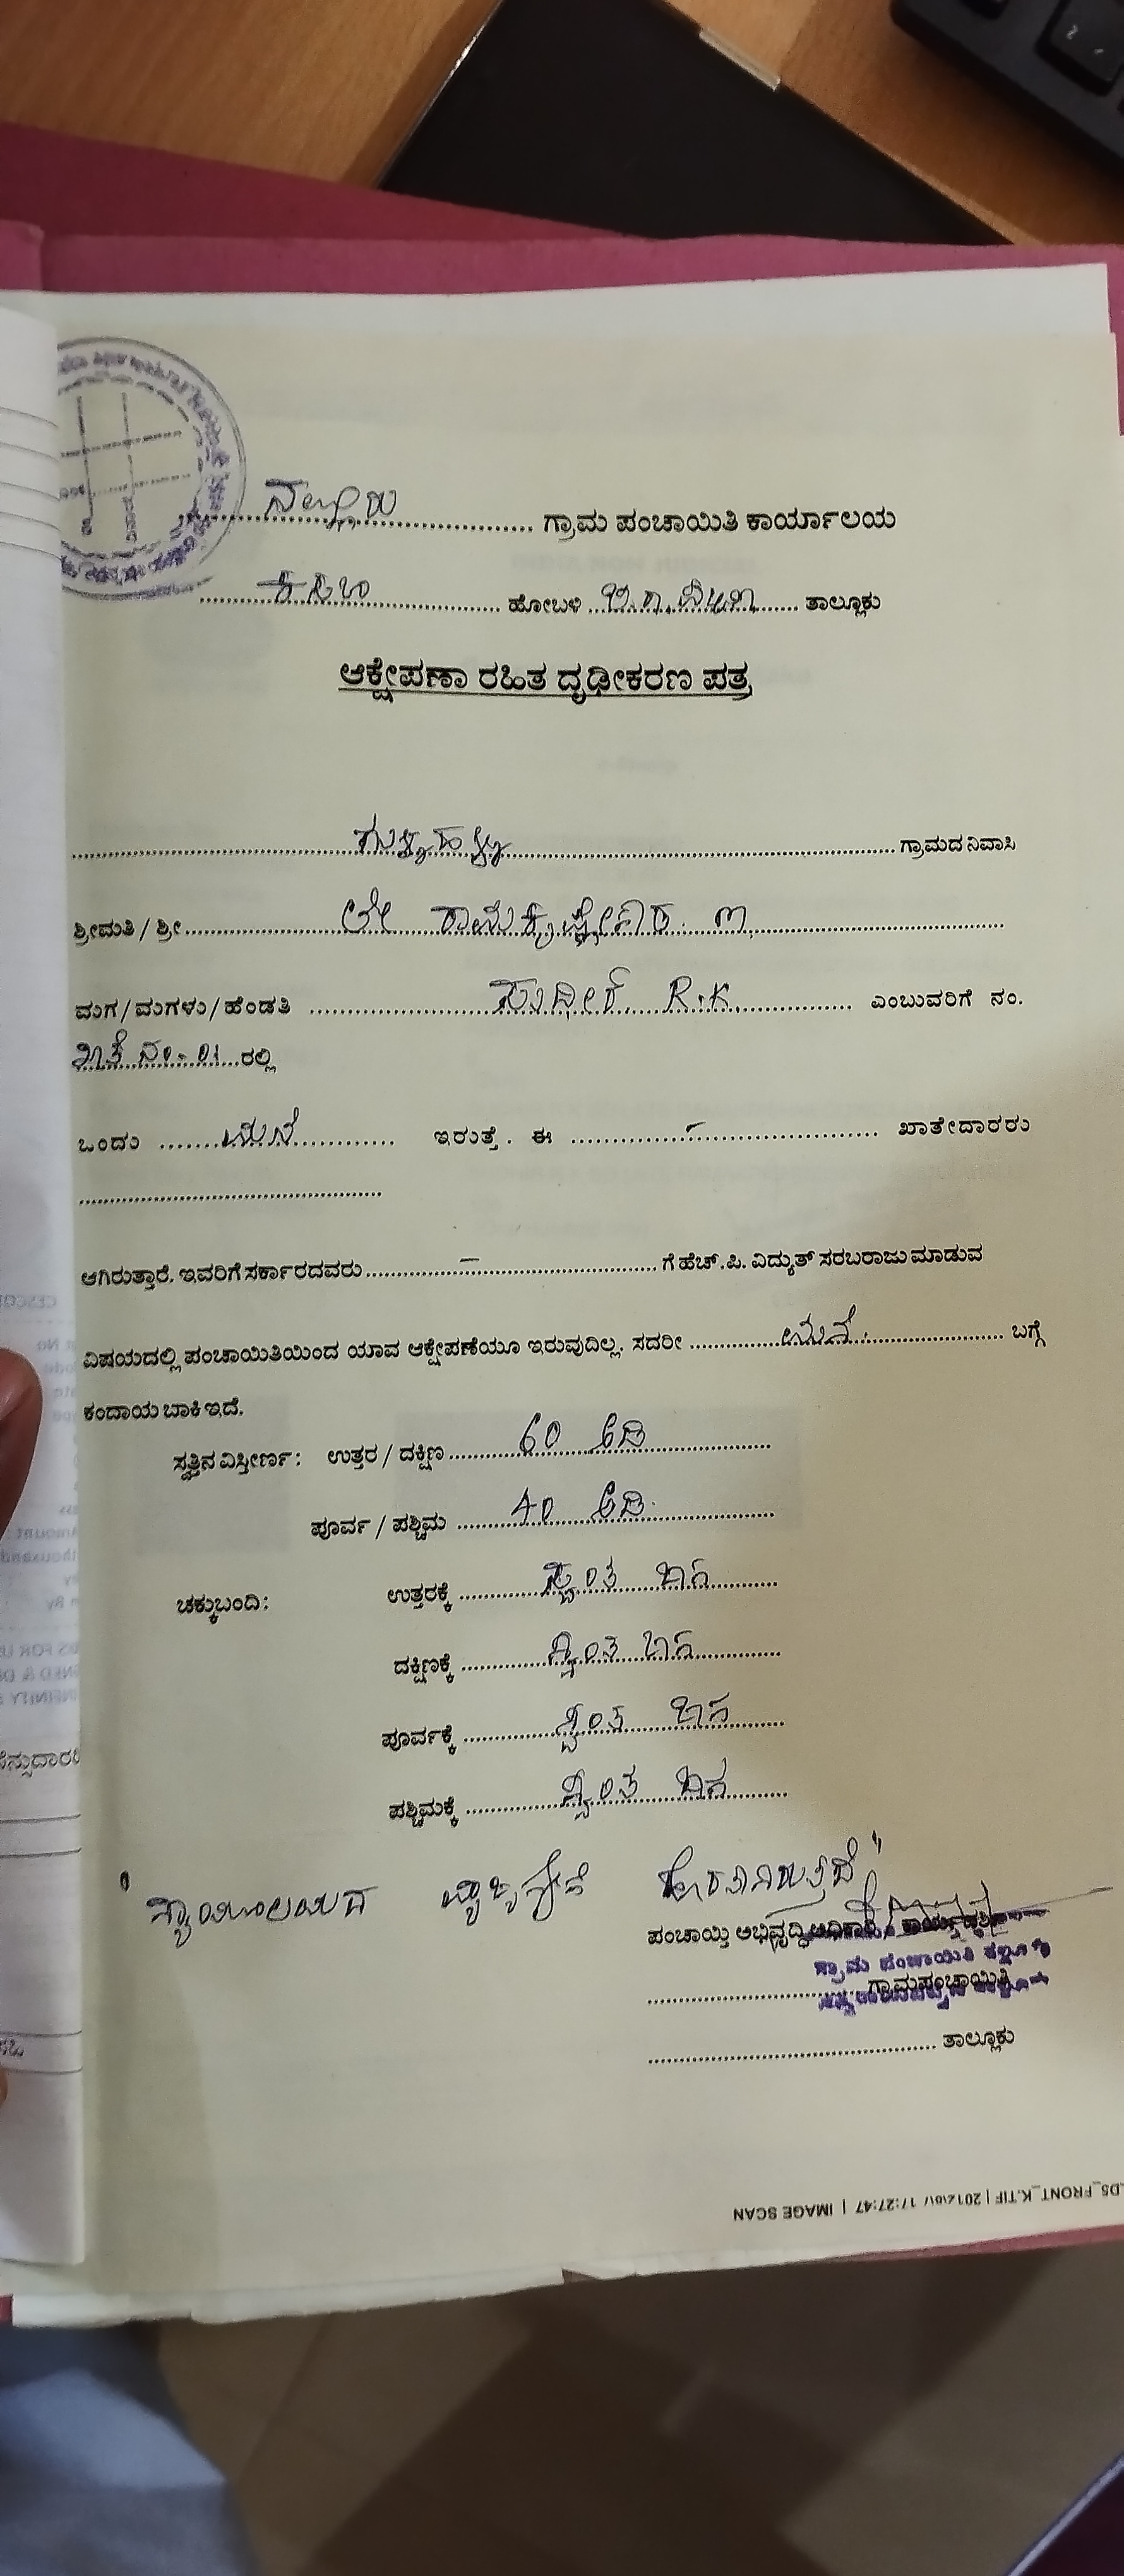 ನಲ್ಲೂರು ಗ್ರಾಮ ಪಂಚಾಯಿತಿ ಕಾರ್ಯಾಲಯ
ಕಸಬಾ ಹೋಬಳಿ ತಾಲ್ಲೂಕು
ಆಕ್ಷೇಪಣಾ ರಹಿತ ದೃಢೀಕರಣ ಪತ್ರ
ಗ್ರಾಮದ ನಿವಾಸಿ
ಶ್ರೀಮತಿ / ಶ್ರೀ ಲೇ
ಮಗ / ಮಗಳು / ಹೆಂಡತಿ ಸುಧೀರ್. R.K. ಎಂಬುವರಿಗೆ ನಂ.
ಖಾತೆ ನಂ- 01 ರಲ್ಲಿ
ಒಂದು ಮನೆ ಇರುತ್ತೆ. ಈ - ಖಾತೇದಾರರು
ಆಗಿರುತ್ತಾರೆ. ಇವರಿಗೆ ಸರ್ಕಾರದವರು - ಗೆ ಹೆಚ್.ಪಿ. ವಿದ್ಯುತ್ ಸರಬರಾಜು ಮಾಡುವ
ವಿಷಯದಲ್ಲಿ ಪಂಚಾಯಿತಿಯಿಂದ ಯಾವ ಆಕ್ಷೇಪಣೆಯೂ ಇರುವುದಿಲ್ಲ. ಸದರೀ ಮನೆ. ಬಗ್ಗೆ
ಕಂದಾಯ ಬಾಕಿ ಇದೆ.
ಸ್ವತ್ತಿನ ವಿಸ್ತೀರ್ಣ: ಉತ್ತರ / ದಕ್ಷಿಣ 60 ಅಡಿ
ಪೂರ್ವ / ಪಶ್ಚಿಮ 40 ಅಡಿ.
ಚಕ್ಕುಬಂದಿ: ಉತ್ತರಕ್ಕೆ ಸ್ವಂತ ಜಾಗ
ದಕ್ಷಿಣಕ್ಕೆ ಸ್ವಂತ ಜಾಗ
ಪೂರ್ವಕ್ಕೆ ಸ್ವಂತ ಜಾಗ
ಪಶ್ಚಿಮಕ್ಕೆ ಸ್ವಂತ ಜಾಗ
" ನ್ಯಾಯಾಲಯದ ವ್ಯಾಜ್ಯಗಳಿಗೆ ಹೊರತಾಗಿರುತ್ತದೆ "
ಪಂಚಾಯ್ತಿ ಅಭಿವೃದ್ಧಿ ಅಧಿಕಾರಿ /
ಗ್ರಾಮ ಪಂಚಾಯಿತಿ ನಲ್ಲೂರು
ಗ್ರಾಮಪಂಚಾಯಿತಿ
ತಾಲ್ಲೂಕು
IMAGE SCAN